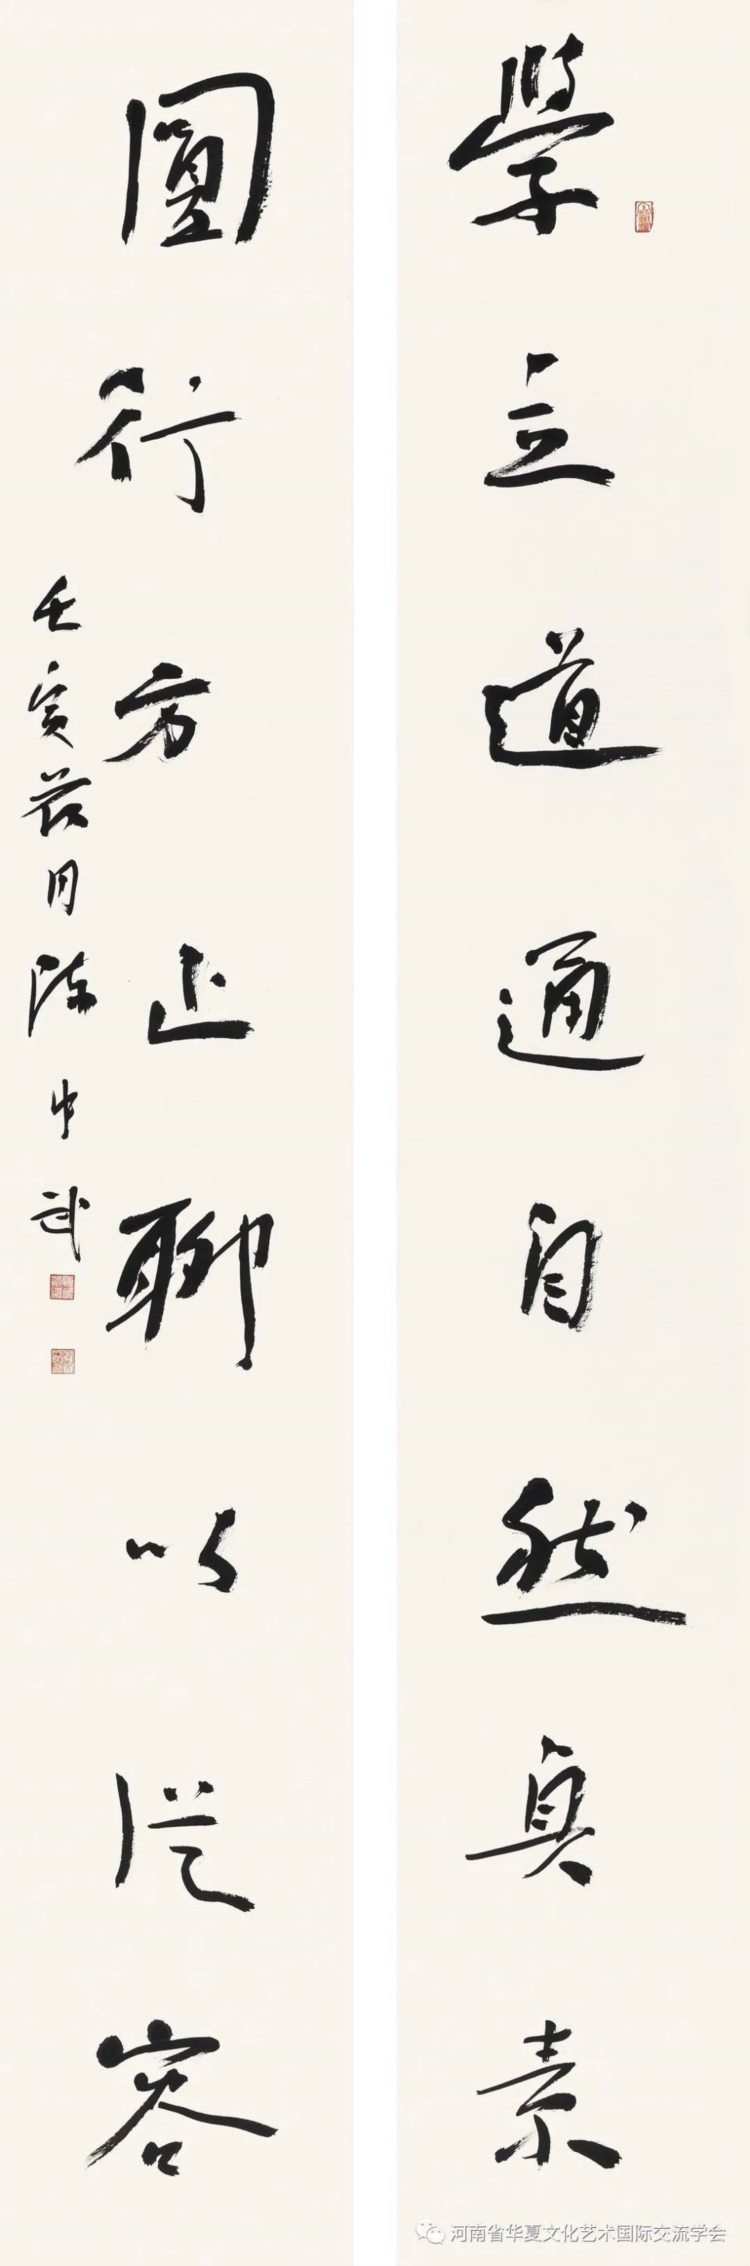 學立道通自然真素
圓行方止聊以從容
壬寅荷月陳中武
河南省华夏文化艺术国际交流学会